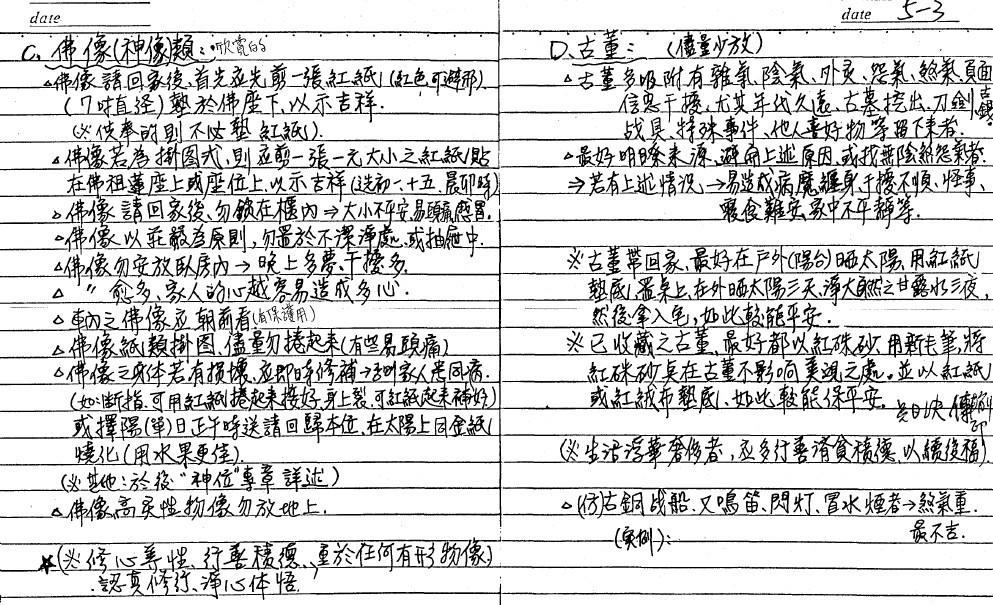 date
C. 佛像(神像)類: 欣賞的
△佛像請回家後、首先並先剪一張紅紙(紅色可避邪)
(7吋直径)墊於佛座下、以示吉祥.
(※供奉的則不必墊紅紙).
△佛像若為掛图式、則並剪一張一元大小之紅紙貼
在佛祖蓮座上或座位上、以示吉祥(选初一、十五、晨卯時)
△佛像請回家後、勿鎖在櫃內→大小不平安易頭痛感冒.
△佛像以莊嚴為原則、勿置於不潔淨處、或抽屜中.
△佛像勿安放卧房內→晚上多夢、干擾多.
△ 〃 愈多、家人的心越容易造成多心.
△車內之佛像並朝前看(有保護用)
△佛像紙類掛图、儘量勿捲起來(有些易頭痛)
△佛像之身体若有损壞、並即時修補→否則家人患同病.
(如:断指、可用紅紙捲起來接好、身上裂、可紅紙起來補好)
或擇陽(單)日正午時送請回歸本位、在太陽上同金紙
燒化(用水果更佳).
(※其他:於後"神位"專章詳述)
△佛像高灵性物像勿放地上.
★(※修心養性、行善積德、重於任何有形物像)
.認真修行、淨心体悟.
date 5-3
D. 古董: (儘量少放)
△古董多吸附有雜氣、陰氣、外灵、怨氣、煞氣、負面
信息干擾、尤其年代久遠、古墓挖出、刀劍、古錢、
战具、特殊事件、他人喜好物等留下來者.
△最好明瞭來源、避免上述原因、或找無陰煞怨氣者.
⇒若有上述情況、→易造成病魔纏身、干擾不順、怪事、
寢食難安、家中不平靜等.
※古董帶回家、最好在戶外(陽台)晒太陽、用紅紙
墊底、置桌上、在外晒太陽三天、淨大自然之甘露水三夜、
然後拿入宅、如此較能平安.
※已收藏之古董、最好都以紅硃砂、用新毛筆、將
紅硃砂点在古董不影响美觀之處。並以紅紙
或紅絨布墊底、如此較能保平安.
(※生活浮華奢侈者、並多行善濟貧積德、以續後福)
△(仿)古銅战船、又鳴笛、閃灯、冒水煙者→煞氣重.
(实例): 最不吉.